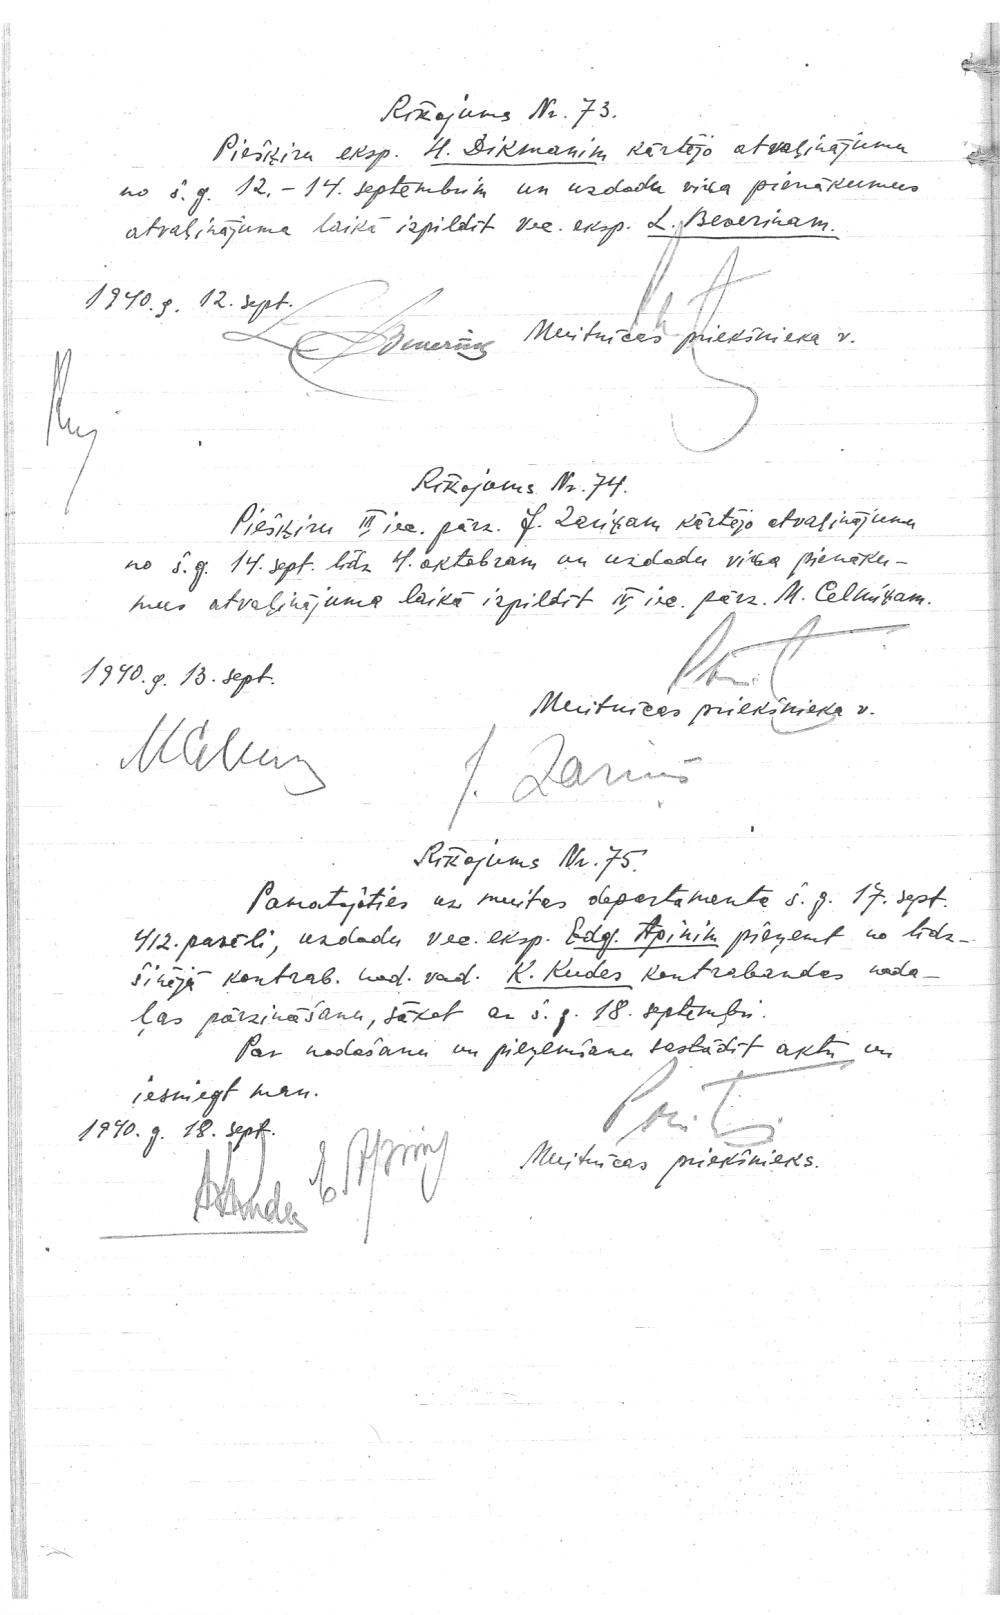 Rīkojums Nr. 73.
Piešķiru eksp. H. Dikmanim kārtējo atvaļinājumu
no š. g. 12. – 14. septembrim un uzdodu viņa pienākumus
atvaļinājuma laikā izpildīt vec. eksp. L. Beverinam.
1940. g. 12. sept.
L. Beveriņš Muitnīcas priekšnieka v.
Rīkojums Nr. 74.
Piešķiru III iec. pārz. J. Zariņam kārtējo atvaļinājumu
no š. g. 14. sept. līdz 4. oktobram un uzdodu viņa pienāku-
mus atvaļinājuma laikā izpildīt IV iec. pārz. M. Celmiņam.
1940. g. 13. sept.
Muitnīcas priekšnieka v.
J. Zariņš
Rīkojums Nr. 75.
Pamatojoties uz muitas departamenta š. g. 17. sept.
412. pavēli, uzdodu vec. eksp. Edg. Apinim pieņemt no līdz-
šinējā kontrab. nod. vad. K. Kudes kontrabandas noda-
ļas pārzināšanu, sākot ar š. g. 18. septembri.
Par nodošanu un pieņemšanu sastādīt aktu un
iesniegt man.
1940. g. 18. sept.
Muitnīcas priekšnieks.
E. Apinis